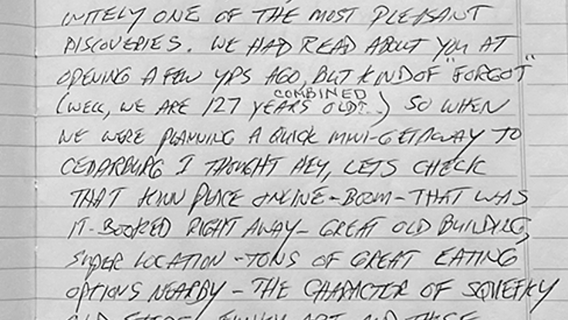 INITELY ONE OF THE MOST PLEASANT
DISCOVERIES. WE HAD READ ABOUT YOU AT
OPENING A FEW YRS AGO, BUT KIND OF "FORGOT"
COMBINED
(WELL, WE ARE 127 YEARS OLD!..) SO WHEN
WE WERE PLANNING A QUICK MINI-GETAWAY TO
CEDARBURG I THOUGHT HEY, LETS CHECK
THAT INN PLACE ONLINE-BOOM-THAT WAS
IT-BOOKED RIGHT AWAY-GREAT OLD BUILDING,
SUPER LOCATION-TONS OF GREAT EATING
OPTIONS NEARBY-THE CHARACTER OF SQUEEKY
OLD